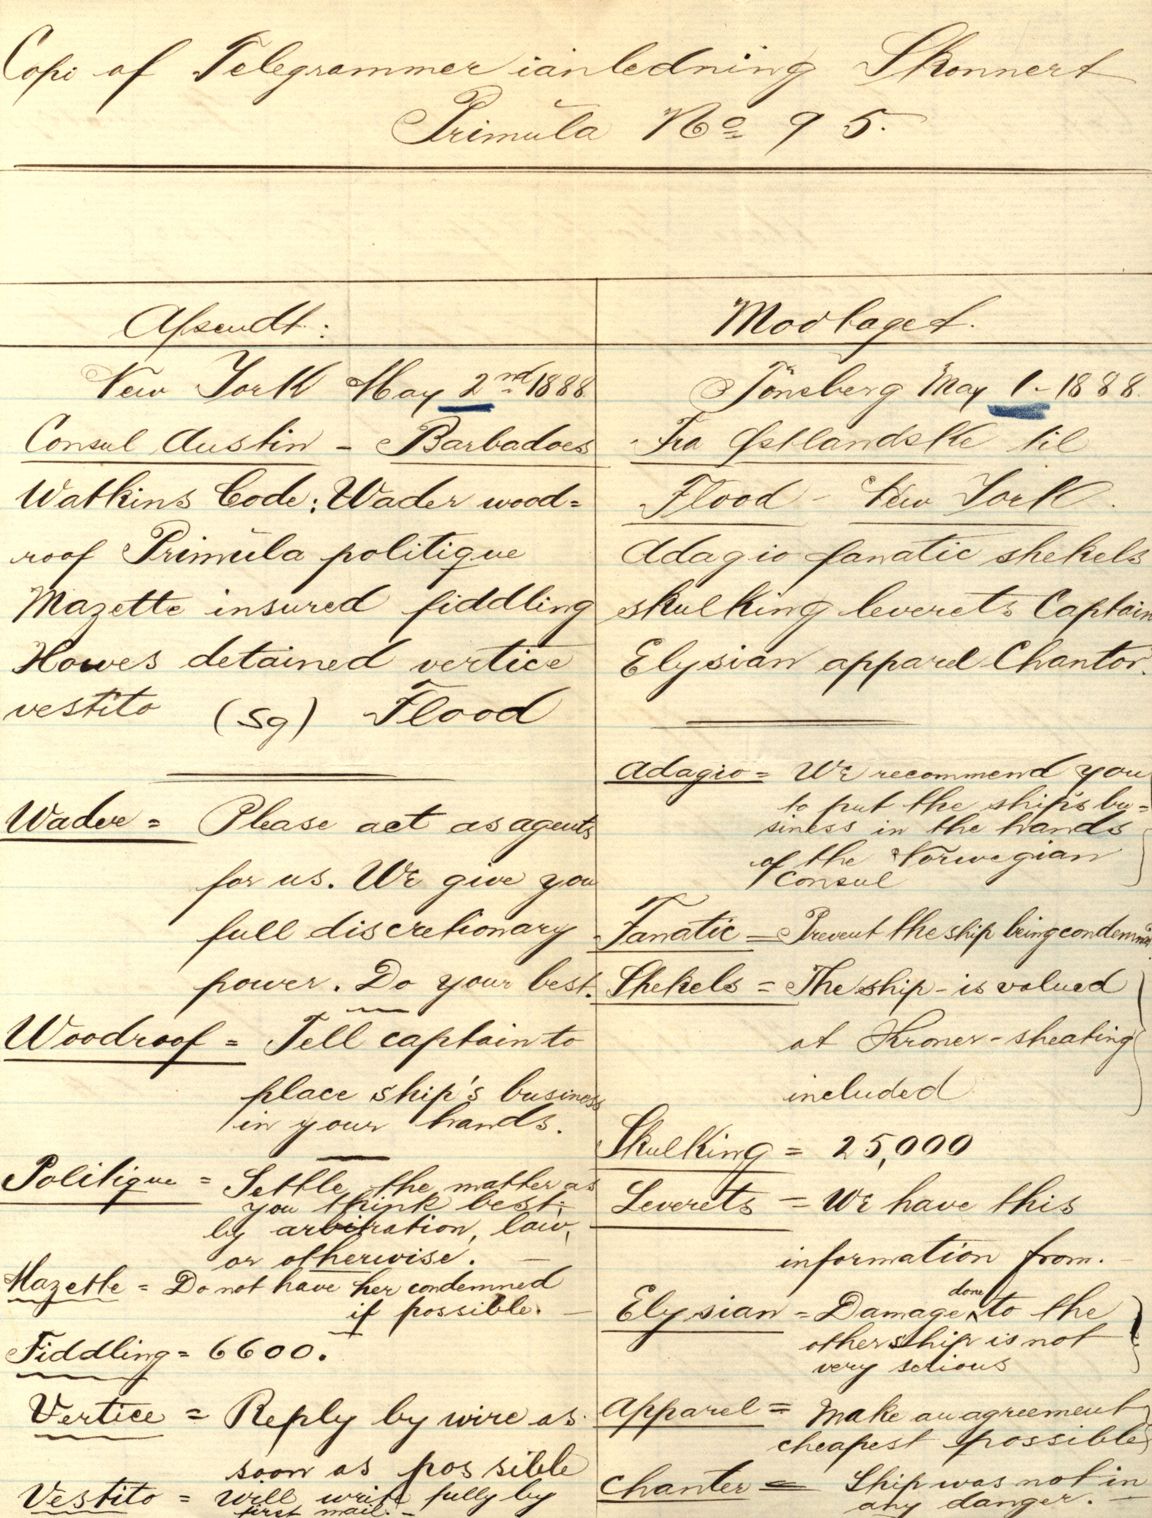 Copi af Telegrammer ianledning Skonnert
Primula No 95.
Afsendt:
New York May 2nd 1888
Consul Austin - Barbadoes
Watkins Code: Wader wood=
roof Primula politique
Mazette insured fiddling
Howes detained vertice
vestito (Sg) Flood
Wader = Please act as agents
for us. We give you
full discretionary
power. Do your best.
Woodroof = Tell captain to
place ship's business
in your hands.
Politique = Settle the matter as
you think best
by arbitration, law,
or otherwise. -
Mazette = Do not have her condemned
if possible. -
Fiddling = 6600.
Vertice = Reply by wire as
soon as possible
Vestito = Will write fully by
first mail. -
Modtaget.
Tönsberg May 1 - 1888.
Fra Østlandske til
Flood - New York.
Adagio fanatic shekels
skulking leverets Captain
Elysian apparel Chantor.
Adagio = We recommend you
to put the ship's bu=
siness in the hands
of the Norwegian
Consul
Fanatic = Prevent the ship being condemn
Shekels = The ship - is valued
at Kroner - sheating
included
Skulking = 25,000
Leverets = We have this
information from. -
Elysian = Damage done to the
other ship is not
very serious
Apparel = Make an agreement
cheapest possible
Chanter = Ship was not in
any danger. -